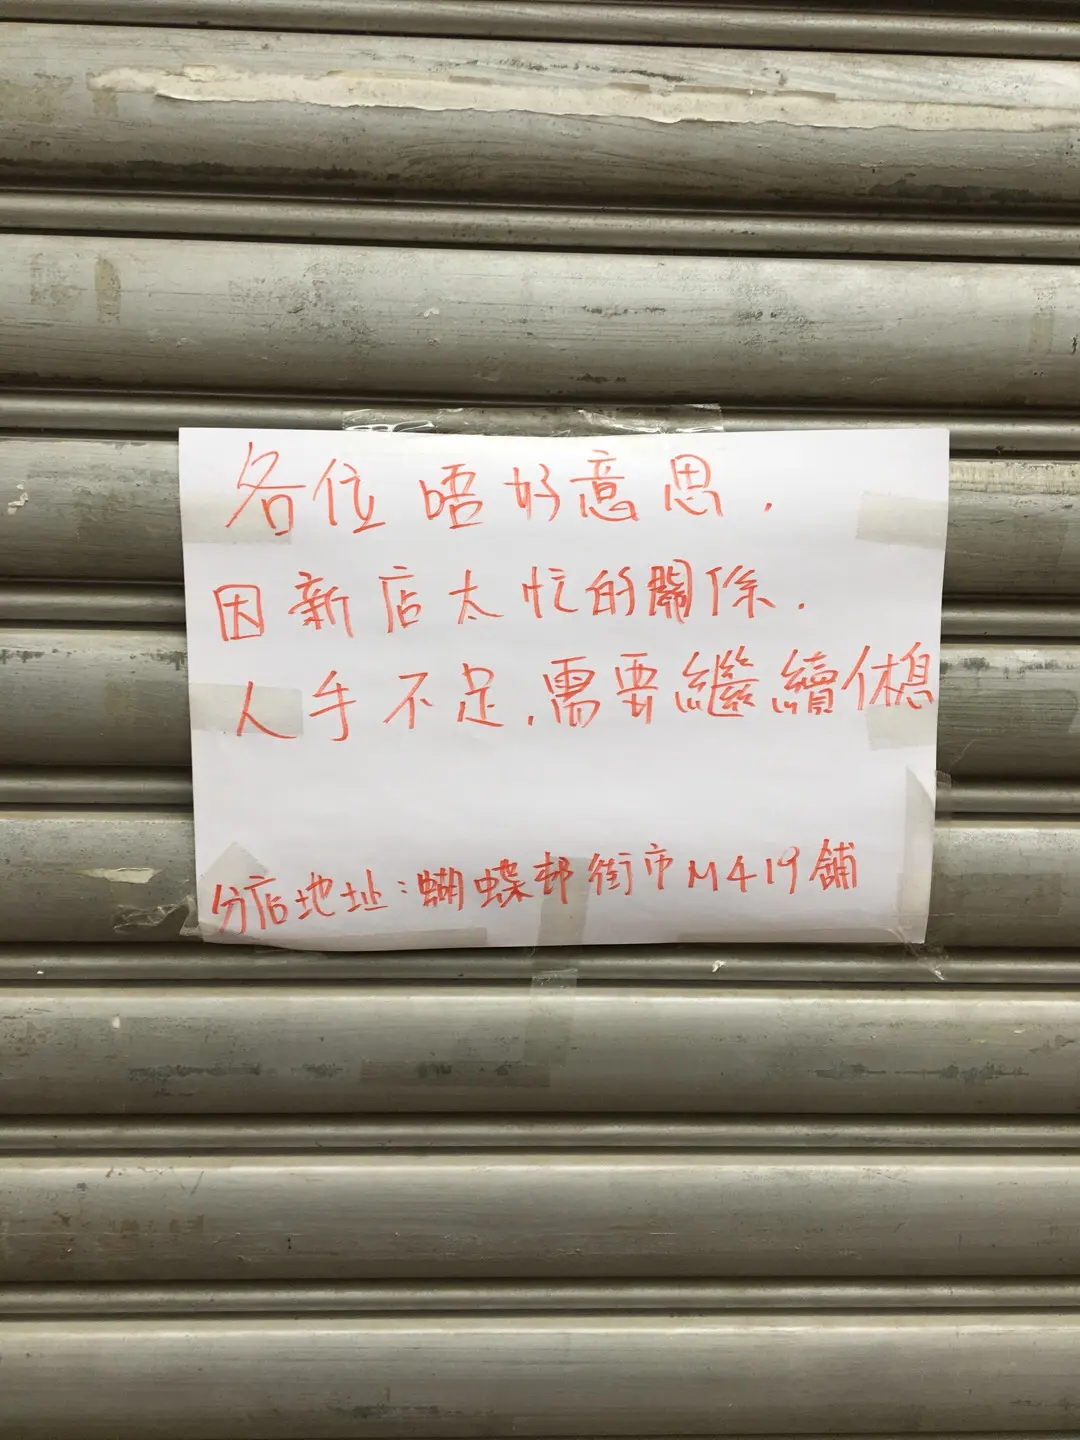 各位唔好意思.
因新店太忙的關係.
人手不足,需要繼續休息
分店地址:蝴蝶邨街市M419舖